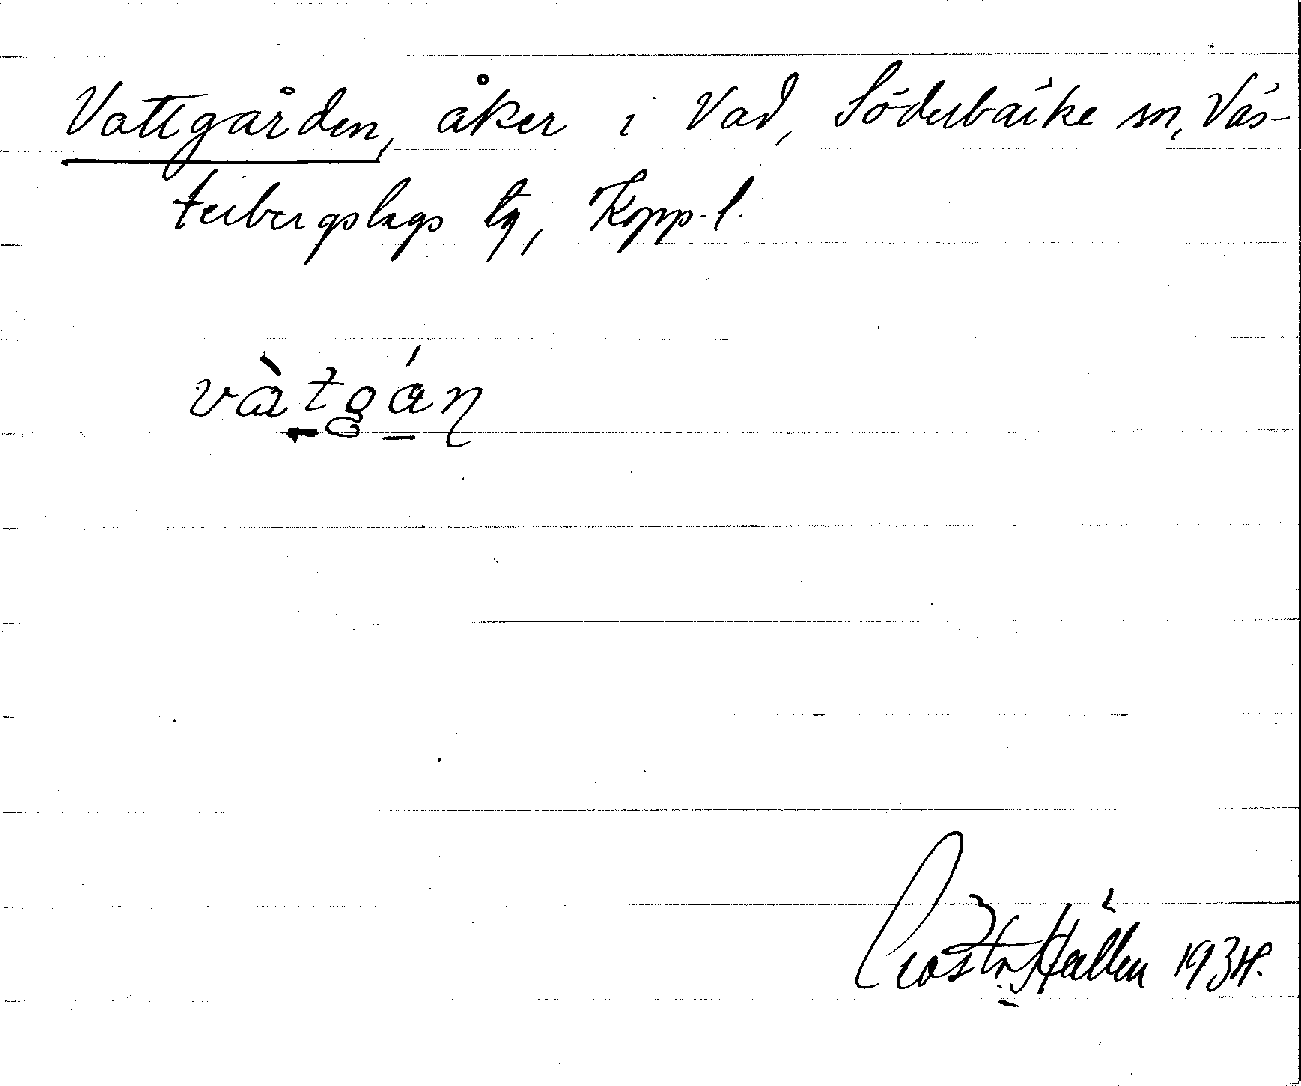 Vattgården, åker i Vad, Söderbärke sn, Väs-
terbergslags tg, Kopp. l.
vàtgán
Gösta Hällen 1934.